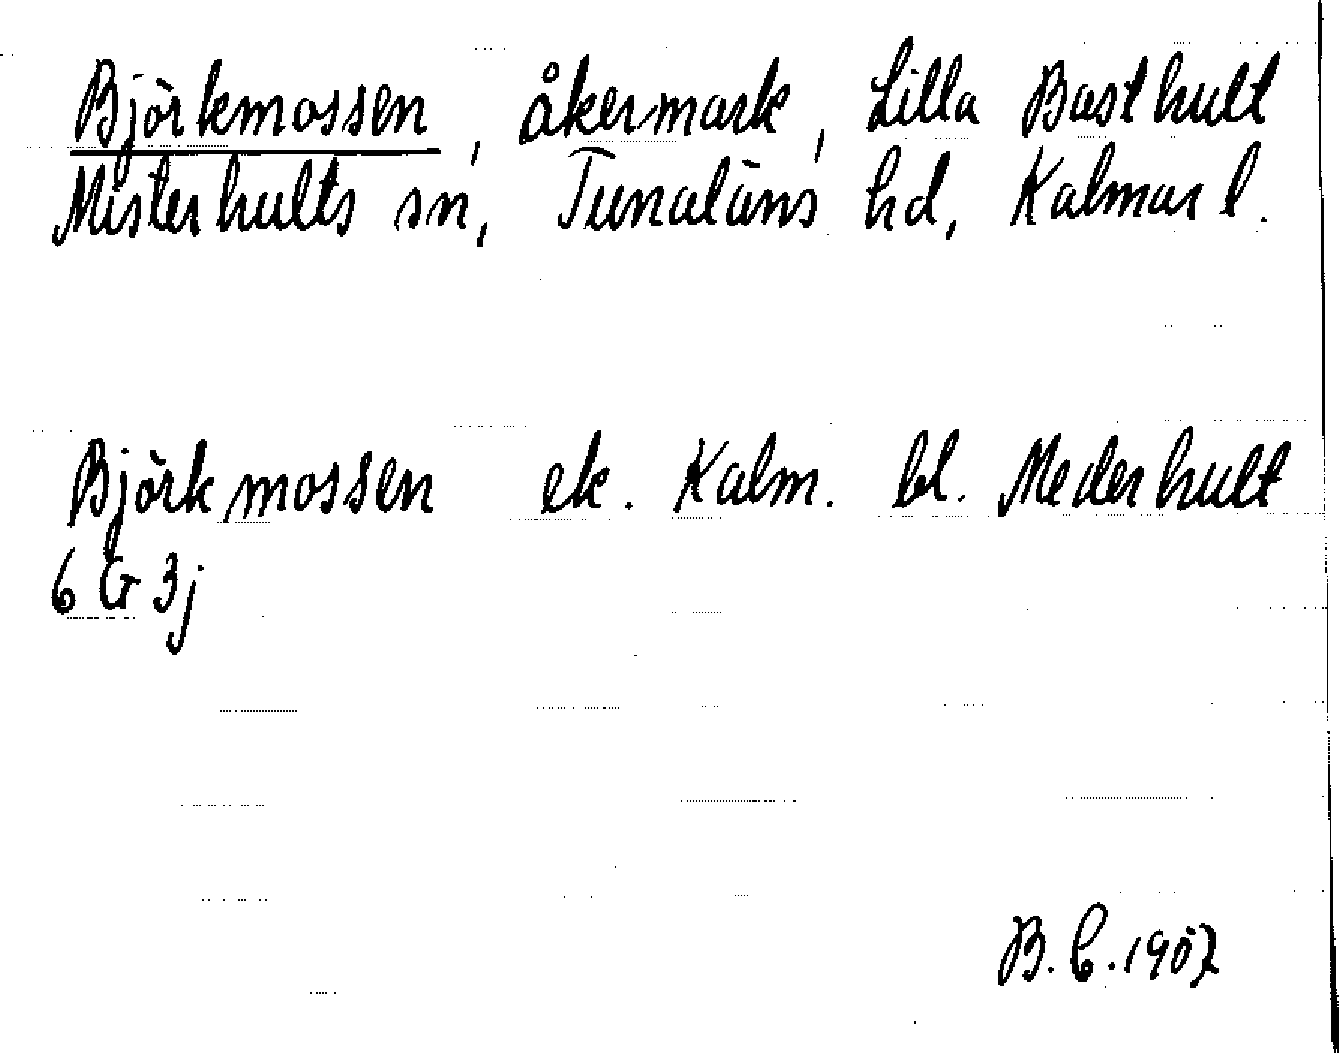 Björkmossen, åkermark, Lilla Basthult
Misterhults sn, Tunaläns hd, Kalmar l.
Björkmossen ek. Kalm. bl. Mederhult
6 G 3j
B. C. 1907